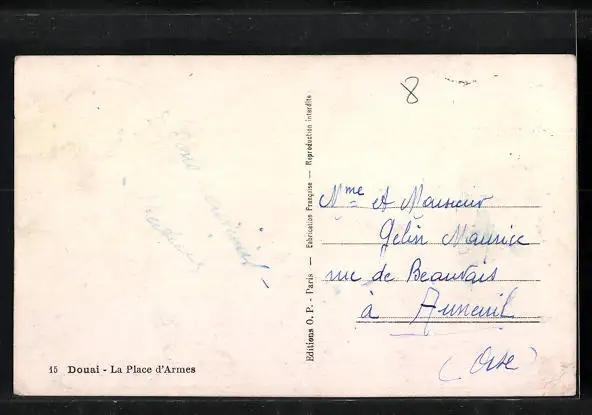 8
Mme et Monsieur
Gelin Maurice
rue de Beauvais
à Auneuil
(Oise)
Editions O. P. - Paris — Fabrication Française — Reproduction interdite
15 Douai - La Place d'Armes